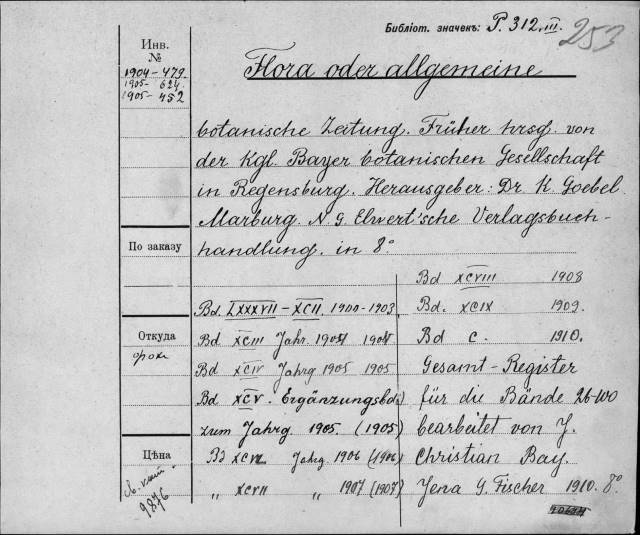 Библіот. значекъ: P. 312.III.
253
Инв.
№
1904-479
1905-624
1905-452
Flora oder allgemeine
botanische Zeitung. Früher hrsg. von
der Kgl. Bayer botanischen Gesellschaft
in Regensburg. Herausgeber: Dr K. Goebel
Marburg. N. G. Elwert'sche Verlagsbuch-
По заказу
handlung. in 8°
Bd. LXXXVII-XCII. 1900-1903.
Откуда
Bd XCIII Jahr. 1904 1904
Bd XCIV Jahrg 1905 1905
Bd XCV. Ergänzungsbd.
zum Jahrg. 1905. (1905)
Цѣна
Bd XCVI Jahrg 1906 (1906)
„ XCVII „ 1907 (1907)
9876
Bd XCVIII 1908
Bd. XCIX 1909.
Bd C. 1910.
Gesamt-Register
für die Bände 26-100
bearbeitet von J.
Christian Bay.
Jena G. Fischer 1910. 8°